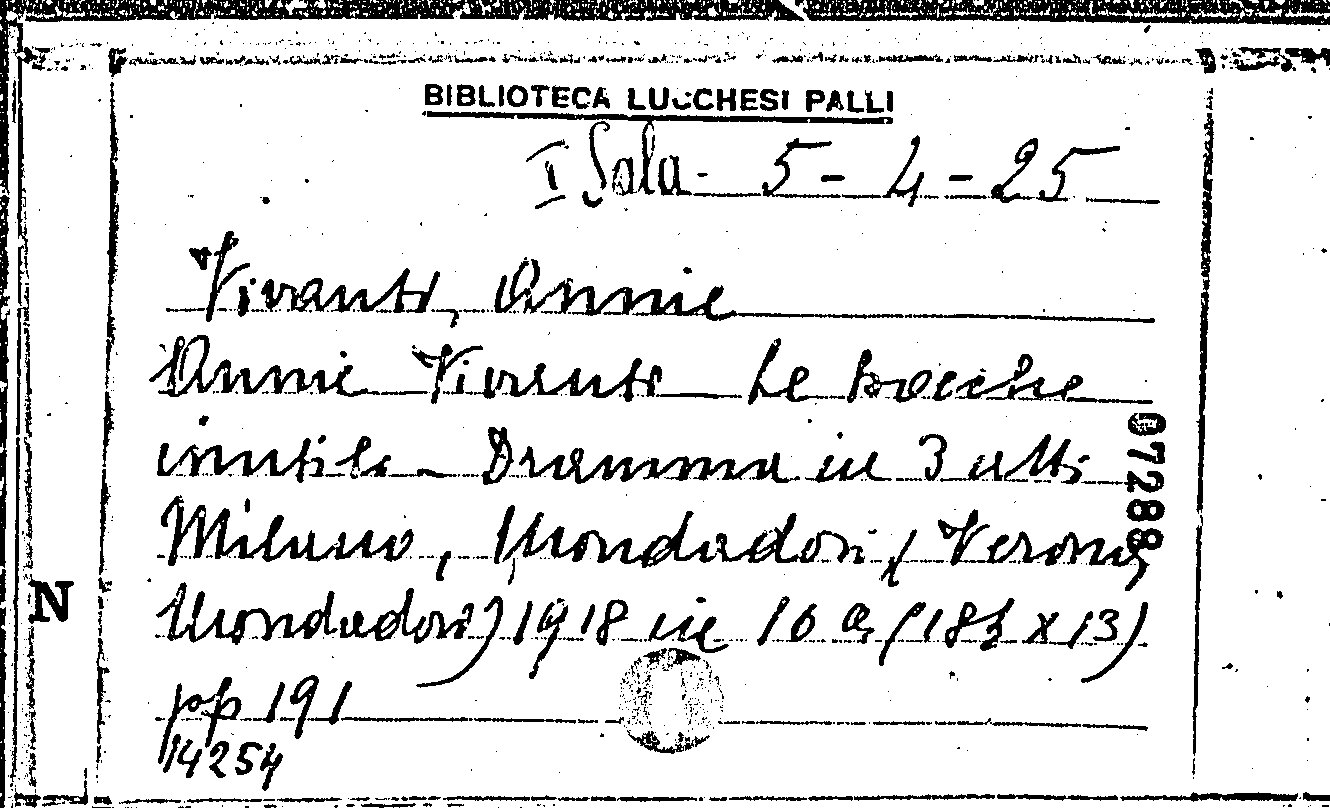 BIBLIOTECA LUCCHESI PALLI
I Sala - 5 - 4 - 25
Vivanti, Annie
Annie Vivanti Le bocche
inutili - Dramma in 3 atti
Milano, Mondadori, (Verona,
Mondadori) 1918 in 16 a, (18½ x 13)
pp 191
14254
07288
N